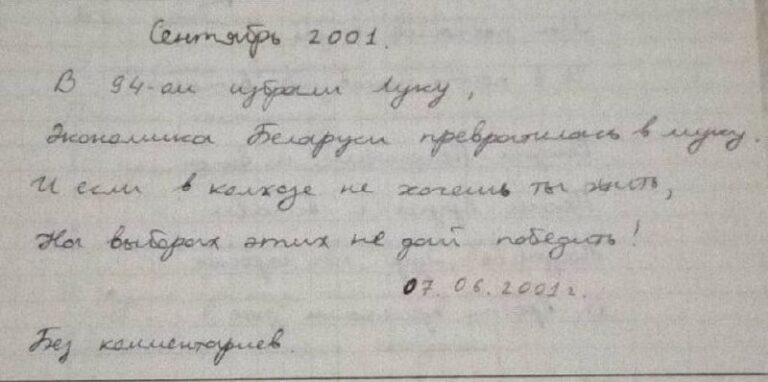 Сентябрь 2001.
В 94-ом избрали Луку,
Экономика Беларуси превратилась в муку.
И если в колхозе не хочешь ты жить,
На выборах этих не дай победить!
07.06.2001 г.
Без комментариев.